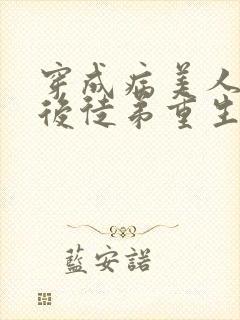 穿成病美人
後徒弟重生
藍安諾